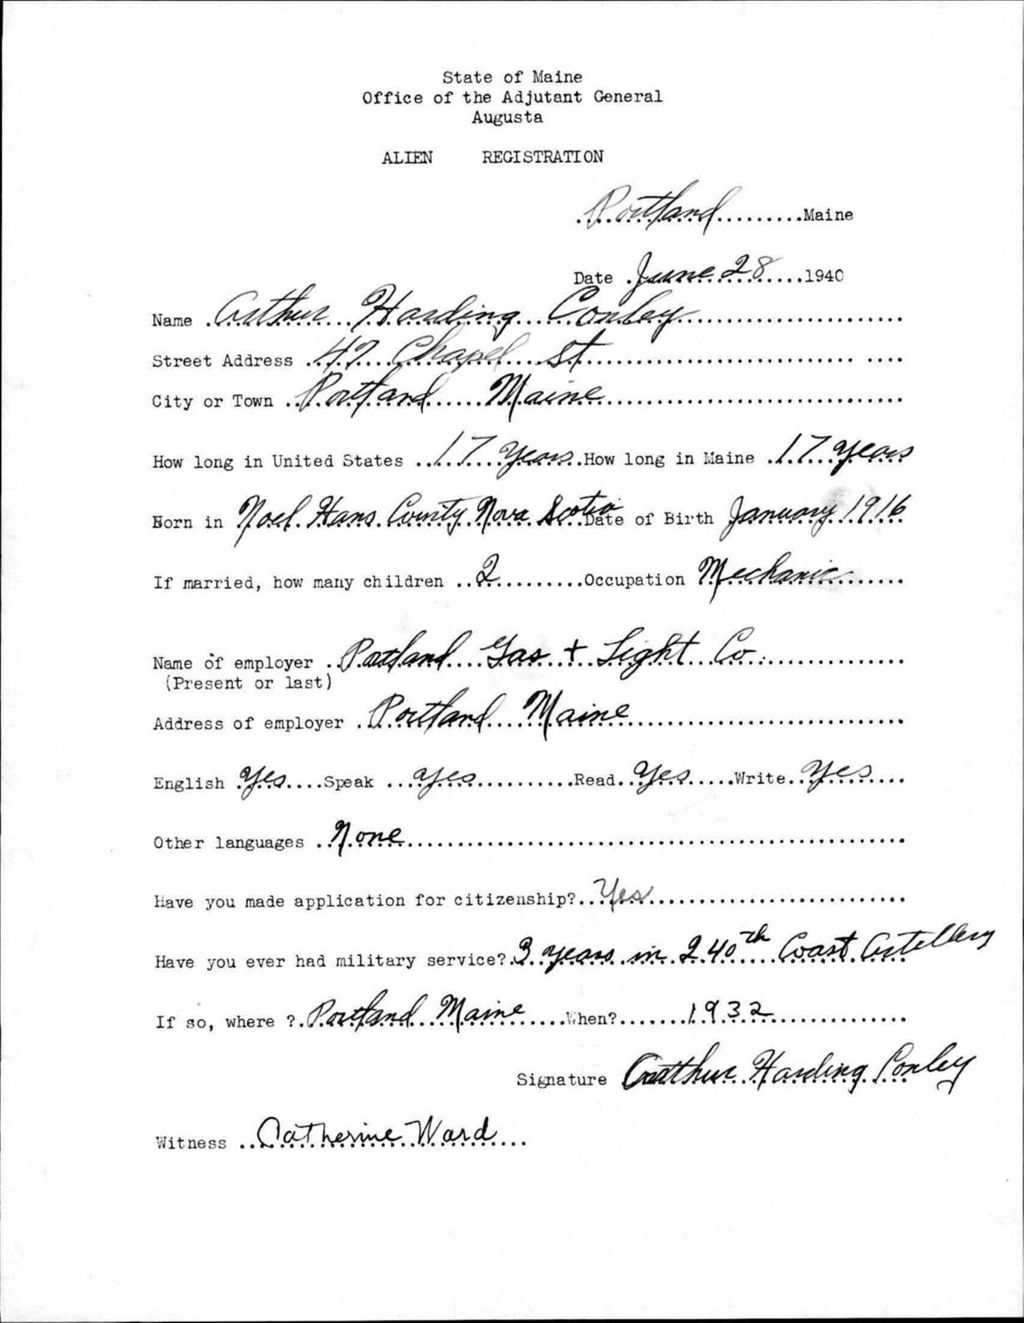 State of Maine
Office of the Adjutant General
Augusta
ALIEN REGISTRATION
Portland.........Maine
Date .June 28....1940
Name .Arthur Harding Conley
Street Address .47 Chapel St
City or Town ..Portland Maine
How long in United States ..17 Years.How long in Maine .17 years
Born in Noel Hans. County Nova Scotia Date of Birth January 1916
If married, how many children ..2..........Occupation Mechanic
Name of employer ..Portland Gas + Light Co.
(Present or last)
Address of employer .Portland Maine
English Yes....Speak ...yes..........Read..Yes.....Write..Yes....
Other languages .None
Have you made application for citizenship?..Yes
Have you ever had military service?.3 years in 240th Coast Artillery
If so, where ?.Portland Maine.....When?.......1932
Signature Arthur Harding Conley
Witness ..Catherine Ward....